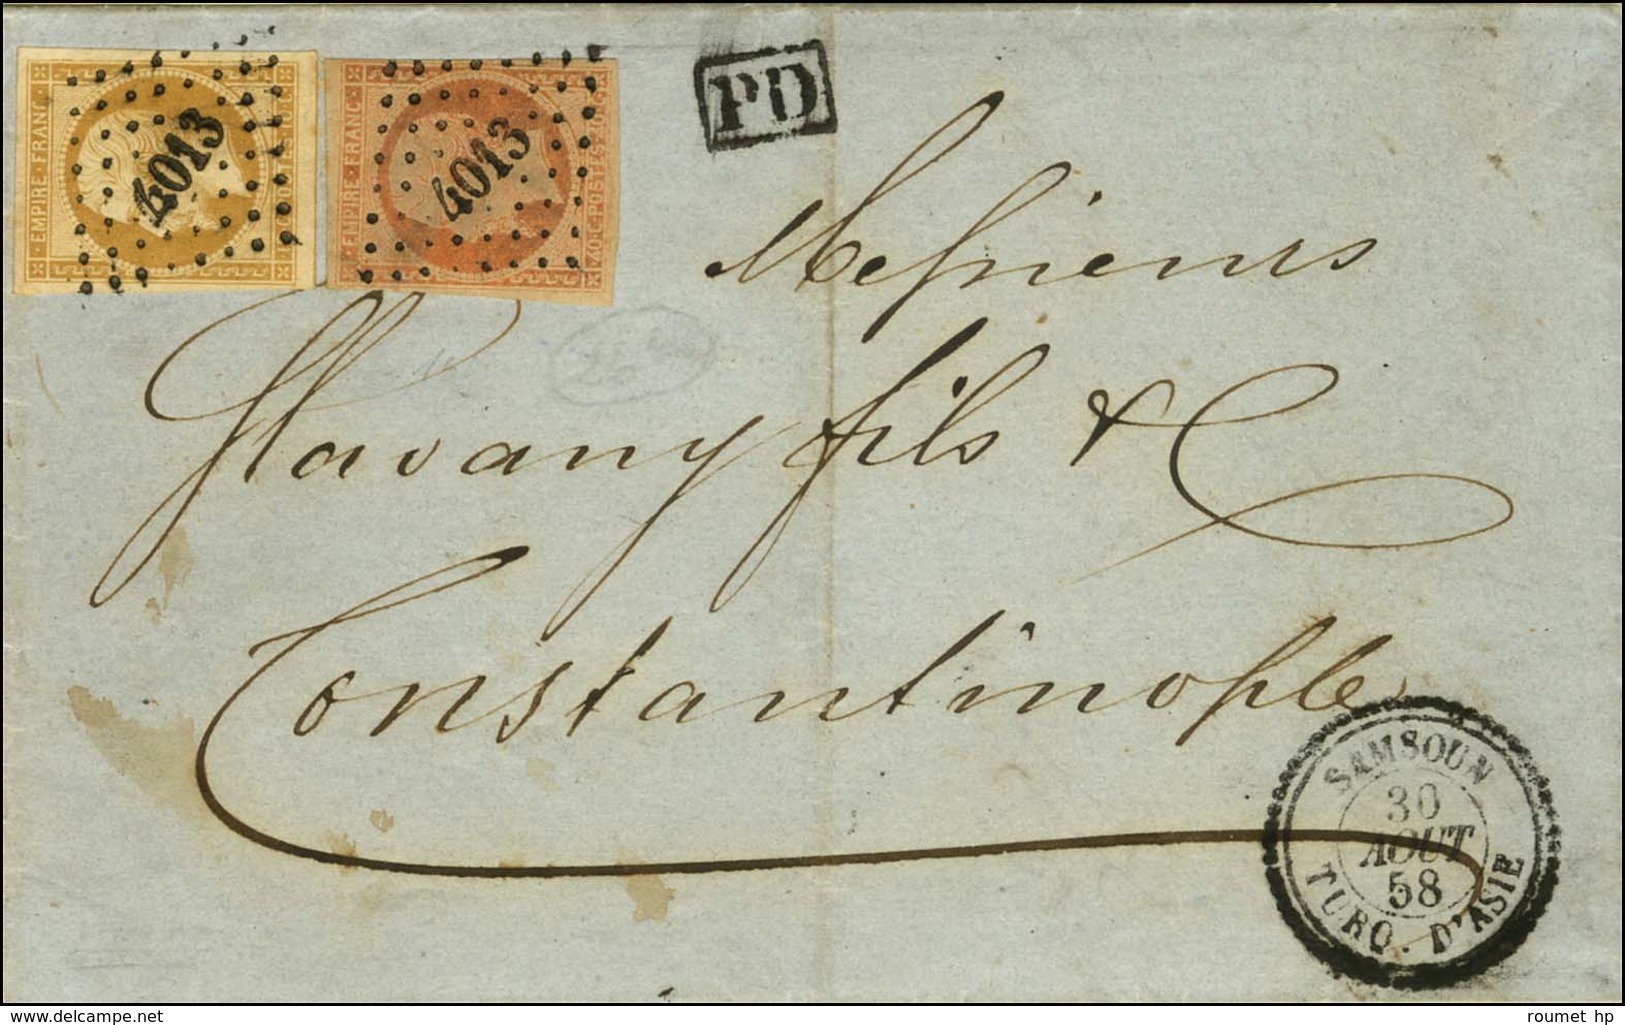 EMPIRE · FRANC ·
4013
EMPIRE · FRANC ·
4013
40·C·POSTES·40·C
PD
Messieurs
Glavany fils & C
Constantinople
SAMSOUN
30
AOUT
58
TURQ. D'ASIE
www.delcampe.net
roumet hp